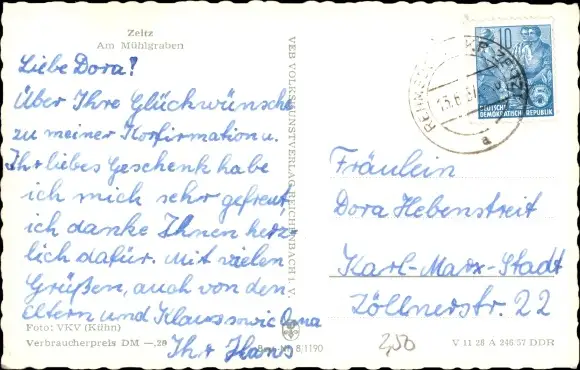 Zeitz
Am Mühlgraben
Liebe Dora!
Über Ihre Glückwünsche
zu meiner Konfirmation u.
Ihr liebes Geschenk habe
ich mich sehr gefreut,
ich danke Ihnen herz-
lich dafür. Mit vielen
Grüßen, auch von den
Eltern und Klaus sowie Oma
Ihr Hans
Foto: VKV (Kühn)
Verbraucherpreis DM —,20
Best.-Nr. 8/1190
VEB VOLKSKUNSTVERLAG REICHENBACH I. V.
10
DEUTSCHE
DEMOKRATISCHE REPUBLIK
Fräulein
Dora Hebenstreit
Karl-Marx-Stadt
Zöllnerstr. 22
2,50
V 11 28 A 246/57 DDR